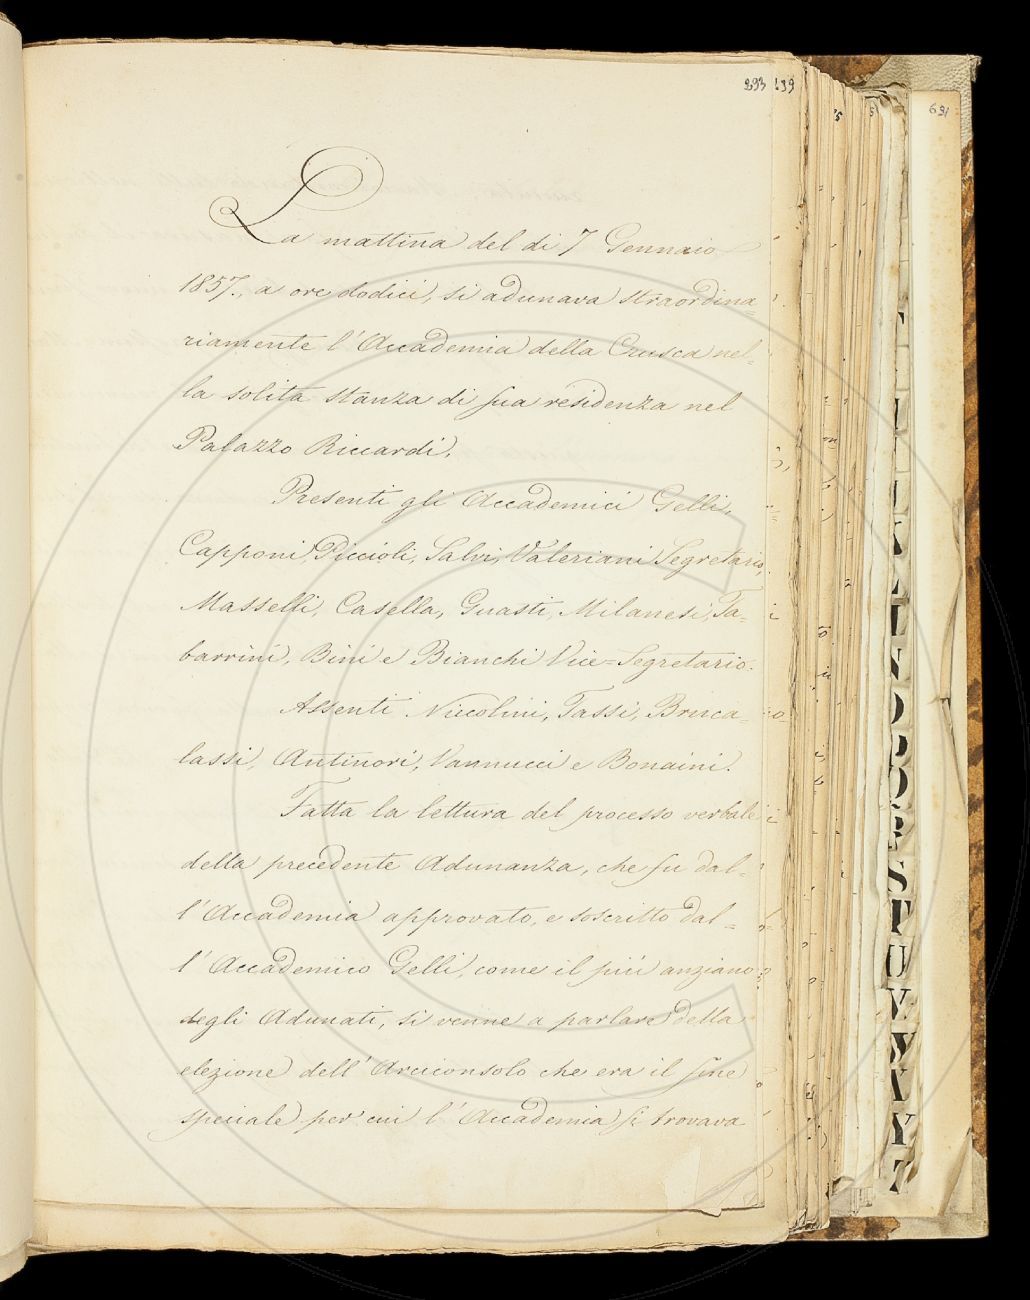 293 139
691
La mattina del dì 7 Gennaio
1857., a ore dodici, si adunava straordina=
riamente l'Accademia della Crusca nel=
la solita stanza di sua residenza nel
Palazzo Riccardi.
Presenti gli Accademici Gelli,
Capponi, Piccioli, Salvi, Valeriani Segretario,
Masselli, Casella, Guasti, Milanesi, Ta=
barrini, Bini e Bianchi Vice=Segretario.
Assenti Niccolini, Tassi, Bruca=
lassi, Antinori, Vannucci e Bonaini.
Fatta la lettura del processo verbale
della precedente Adunanza, che fu dal=
l'Accademia approvato, e soscritto dal=
l'Accademico Gelli, come il più anziano
degli Adunati, si venne a parlare della
elezione dell'Arciconsolo che era il fine
speciale per cui l'Accademia si trovava
S
T
U
V
W
X
Y
Z